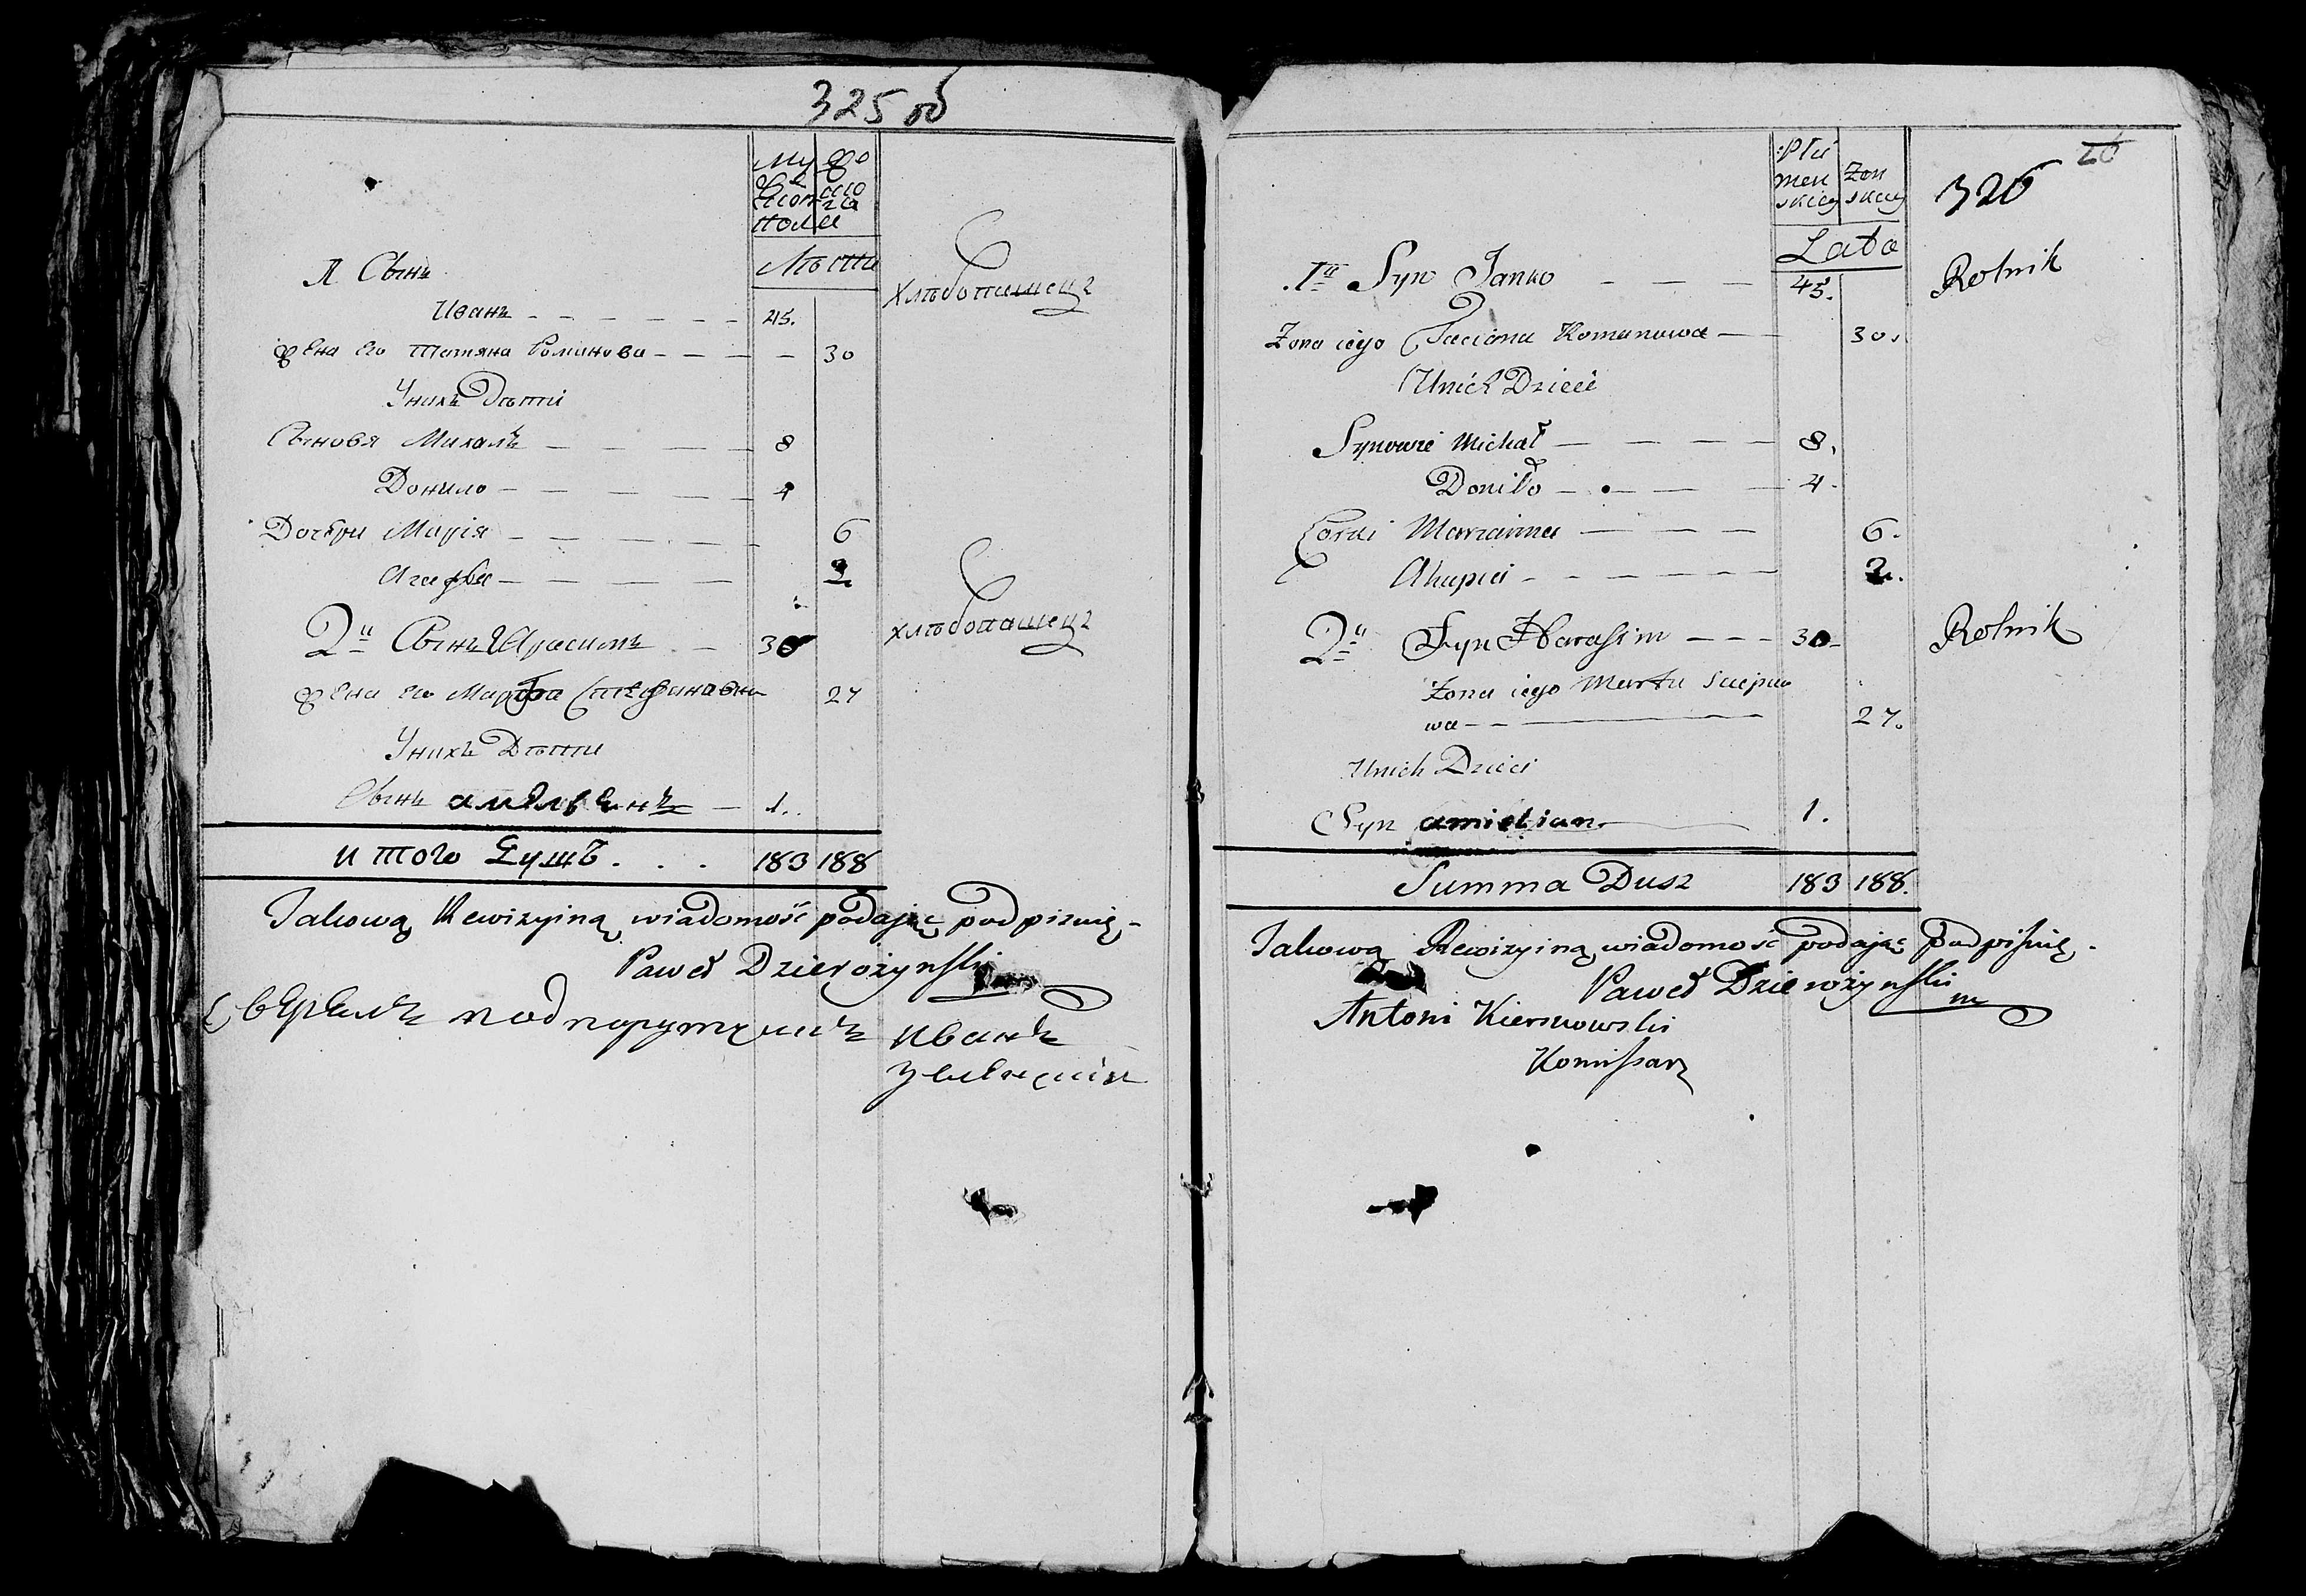 325 об
Му
жеска
полъ
Же
нска
го
Лѣты
Л Сынъ
хлѣбопашецъ
Иванъ - - - - - - 45.
Жена его Татяна Романова - - - - 30
Унихъ Дѣтты
Сыновя Михалъ - - - - 8
Донило - - - - - 4
Дочери Марія - - - - - 6
Агафѣя - - - - 2
2й Сынъ Ярасимъ - 30
хлѣбопашецъ
Жена его Марфа Стефановна 27
Унихъ Дѣтты
Сынъ амельянъ - 1.
и того Душъ . . . 183 188
Jakową Rewizyiną wiadomość podając podpisuię -
Paweł Dzierożynski
сверялъ подпорутчикъ Иванъ
Płci
men
skiey
Zen
skiey
26
326
Lata
1y Syn Janko - - - 45.
Rolnik
Zona iego Taciana Romanowa - 30.
Unich Dzieci
Synowie Michał - - - - 8.
Doniło - - - - 4.
Corki Maryanna - - - 6.
Ahapia - - - - - - 2.
2y Syn Harasim - - - 30 -
Rolnik
Zona iego Marta Sciepano
wa - - - 27.
Unich Dzieci
Syn amielian - 1.
Summa Dusz 183 188.
Jakową Rewizyiną wiadomość podając podpisuię -
Paweł Dzierożynski
Antoni Kiersnowski
Komissarz